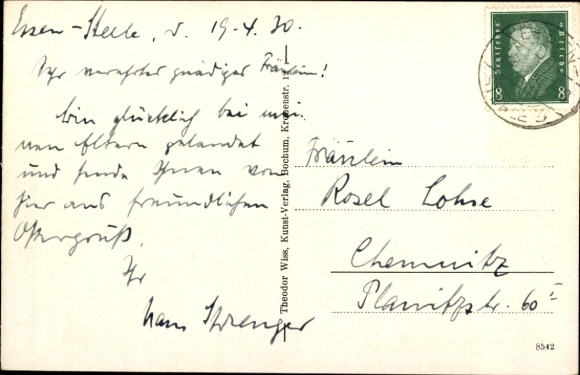 Essen-Steele, d. 19.4.30.
Sehr verehrtes gnädiges Fräulein!
Bin glücklich bei mei-
nen Eltern gelandet
und sende Ihnen von
hier aus freundlichen
Ostergruß.
Ihr
Hans
Theodor Wiss, Kunst-Verlag, Bochum,
Deutsches Reich
8 8
Fräulein
Rosel Lohse
Chemnitz
Planitzstr. 60
8542